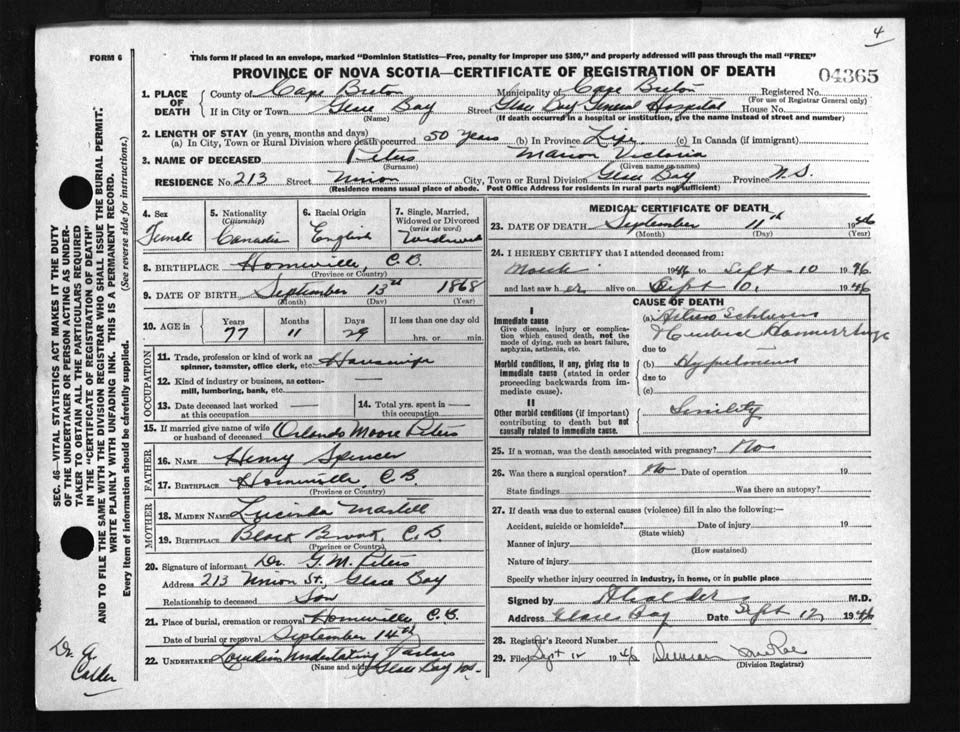 4
FORM 6
This form if placed in an envelope, marked "Dominion Statistics—Free, penalty for improper use $300," and properly addressed will pass through the mail "FREE"
PROVINCE OF NOVA SCOTIA—CERTIFICATE OF REGISTRATION OF DEATH
04365
1. PLACE OF DEATH County of Cape Breton Municipality of Cape Breton Registered No.
(For use of Registrar General only)
If in City or Town Glace Bay Street Glace Bay General Hospital House No.
(Name) (If death occurred in a hospital or institution, give the name instead of street and number)
2. LENGTH OF STAY (in years, months and days)
(a) In City, Town or Rural Division where death occurred 50 years (b) In Province Life (c) In Canada (if immigrant)
3. NAME OF DECEASED Peters Marion Victoria
(Surname) (Given name or names)
RESIDENCE No. 213 Street Union City, Town or Rural Division Glace Bay Province N.S.
(Residence means usual place of abode. Post Office Address for residents in rural parts not sufficient)
4. Sex Female
5. Nationality (Citizenship) Canadian
6. Racial Origin English
7. Single, Married, Widowed or Divorced (write the word) Widowed
8. BIRTHPLACE Homeville, C.B.
(Province or Country)
9. DATE OF BIRTH September 13th 1868
(Month) (Day) (Year)
10. AGE in Years 77 Months 11 Days 29 If less than one day old
hrs. or min.
OCCUPATION
11. Trade, profession or kind of work as spinner, teamster, office clerk, etc. Housewife
12. Kind of industry or business, as cotton-mill, lumbering, bank, etc. —
13. Date deceased last worked at this occupation —
14. Total yrs. spent in this occupation —
15. If married give name of wife or husband of deceased Orlando Moore Peters
FATHER
16. NAME Henry Spencer
17. BIRTHPLACE Homeville, C.B
(Province or Country)
MOTHER
18. MAIDEN NAME Lucinda Martell
19. BIRTHPLACE Black Brook, C.B.
(Province or Country)
20. Signature of informant Dr. G.M. Peters
Address 213 Union St., Glace Bay
Relationship to deceased Son
21. Place of burial, cremation or removal Homeville C.B.
Date of burial or removal September 14th
22. UNDERTAKER Undertaking Parlors
(Name and address) Glace Bay N.S.
MEDICAL CERTIFICATE OF DEATH
23. DATE OF DEATH September 11th 1946
(Month) (Day) (Year)
24. I HEREBY CERTIFY that I attended deceased from:
March 1946 to Sept 10 1946
and last saw her alive on Sept 10, 1946
CAUSE OF DEATH
I
Immediate cause
Give disease, injury or complication which caused death, not the mode of dying, such as heart failure, asphyxia, asthenia, etc.
(a) Arterio Sclerosis
due to
Morbid conditions, if any, giving rise to immediate cause (stated in order proceeding backwards from immediate cause).
(b)
due to
(c)
II
Other morbid conditions (important) contributing to death but not causally related to immediate cause.
Senility
25. If a woman, was the death associated with pregnancy? No
26. Was there a surgical operation? No Date of operation 19
State findings Was there an autopsy?
27. If death was due to external causes (violence) fill in also the following:—
Accident, suicide or homicide? Date of injury 19
(State which)
Manner of injury
(How sustained)
Nature of injury
Specify whether injury occurred in industry, in home, or in public place
Signed by M.D.
Address Glace Bay Date Sept 12 1946
28. Registrar's Record Number
29. Filed Sept 12 1946 Duncan McRae
(Division Registrar)
SEC. 46—VITAL STATISTICS ACT MAKES IT THE DUTY
OF THE UNDERTAKER OR PERSON ACTING AS UNDER-
TAKER TO OBTAIN ALL THE PARTICULARS REQUIRED
IN THE "CERTIFICATE OF REGISTRATION OF DEATH"
AND TO FILE THE SAME WITH THE DIVISION REGISTRAR WHO SHALL ISSUE THE BURIAL PERMIT.
WRITE PLAINLY WITH UNFADING INK. THIS IS A PERMANENT RECORD.
Every item of information should be carefully supplied. (See reverse side for instructions.)
Dr. G
Calder